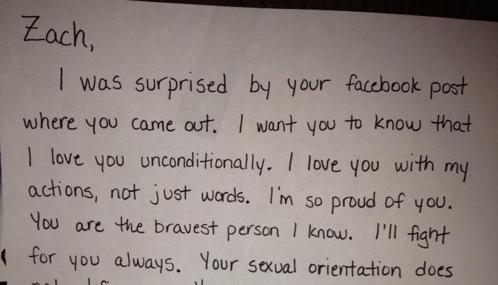 Zach,
I was surprised by your facebook post
where you came out. I want you to know that
I love you unconditionally. I love you with my
actions, not just words. I'm so proud of you.
You are the bravest person I know. I'll fight
for you always. Your sexual orientation does